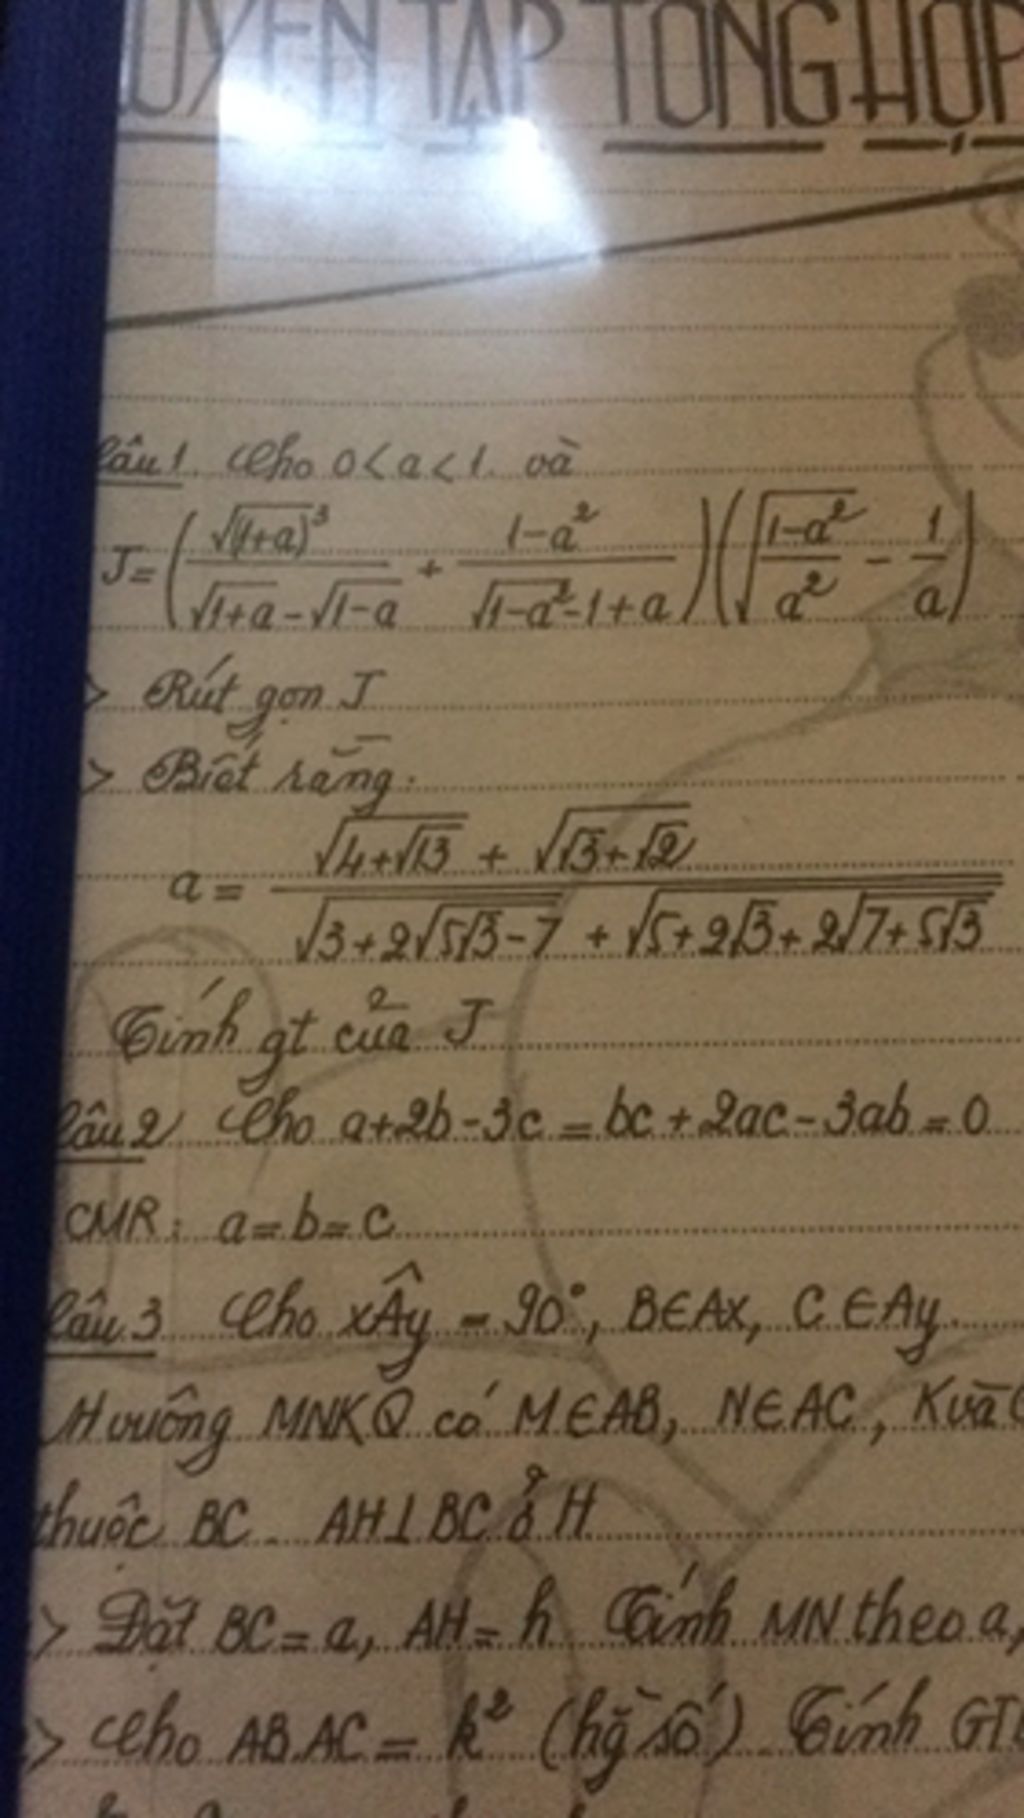 UYỆN TẬP TỔNG HỢP
Câu 1. Cho 0 < a < 1 và
J = ( √(1+a)³ / (√(1+a) - √(1-a)) + (1-a²) / (√(1-a²) - 1 + a) ) ( √((1-a²)/a²) - 1/a )
> Rút gọn J
> Biết rằng:
a = ( √(4+√13) + √(√3+√2) ) / ( √(3+2√(5√3-7)) + √(5+2√3+2√(7+5√3)) )
Tính gt của J
Câu 2 Cho a+2b-3c = bc+2ac-3ab = 0
CMR: a=b=c
Câu 3 Cho xÂy = 90°, B∈Ax, C∈Ay.
H vuông MNKQ có M∈AB, N∈AC, K và
thuộc BC. AH⊥BC ở H
> Đặt BC = a, AH = h Tính MN theo a,
> Cho AB.AC = k² (hg số) Tính GT